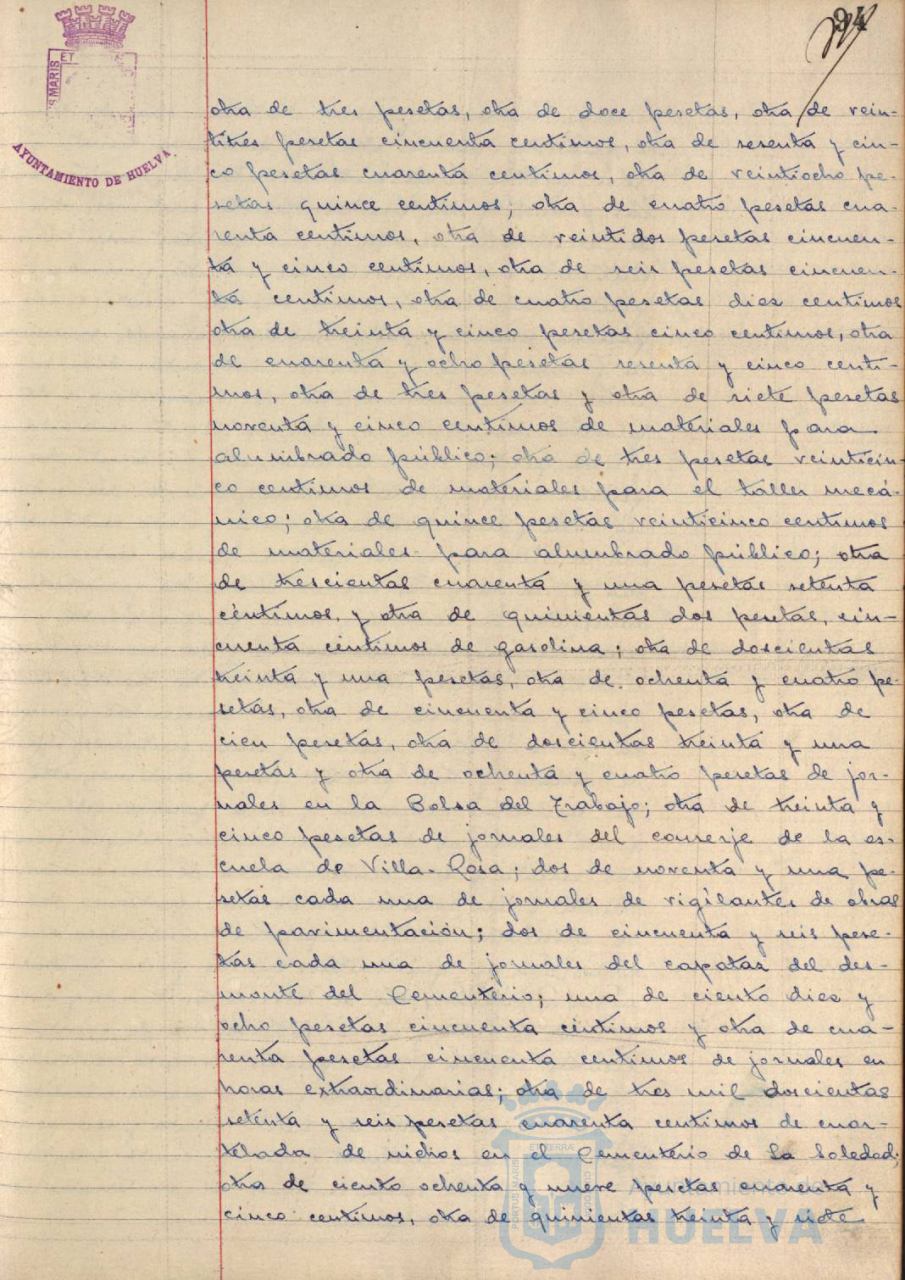 94
MARIS
ET
AYUNTAMIENTO DE HUELVA
otra de tres pesetas, otra de doce pesetas, otra de vein-
titres pesetas cincuenta centimos, otra de sesenta y cin-
co pesetas cuarenta centimos, otra de veintiocho pe-
setas quince centimos; otra de cuatro pesetas cua-
renta centimos, otra de veintidos pesetas cincuen-
ta y cinco centimos, otra de seis pesetas cincuen-
ta centimos, otra de cuatro pesetas diez centimos
otra de treinta y cinco pesetas cinco centimos, otra
de cuarenta y ocho pesetas sesenta y cinco centi-
mos, otra de tres pesetas y otra de siete pesetas
noventa y cinco centimos de materiales para
alumbrado público; otra de tres pesetas veinticin-
co centimos de materiales para el taller mecá-
nico; otra de quince pesetas veinticinco centimos
de materiales para alumbrado público; otra
de trescientas cuarenta y una pesetas setenta
céntimos, y otra de quinientas dos pesetas, cin-
cuenta centimos de gasolina; otra de doscientas
treinta y una pesetas, otra de ochenta y cuatro pe-
setas, otra de cincuenta y cinco pesetas, otra de
cien pesetas, otra de doscientas treinta y una
pesetas y otra de ochenta y cuatro pesetas de jor-
nales en la Bolsa del Trabajo; otra de treinta y
cinco pesetas de jornales del conserje de la es-
cuela de Villa-Rosa; dos de noventa y una pe-
setas cada una de jornales de vigilantes de obras
de pavimentación; dos de cincuenta y seis pese-
tas cada una de jornales del capataz del des-
monte del Cementerio; una de ciento diez y
ocho pesetas cincuenta centimos y otra de cua-
renta pesetas cincuenta centimos de jornales en
horas extraordinarias; otra de tres mil doscientas
setenta y seis pesetas cuarenta centimos de cuar-
telada de nichos en el Cementerio de La Soledad;
otra de ciento ochenta y nueve pesetas cuarenta y
cinco centimos, otra de quinientas treinta y siete
Ayuntamiento de
HUELVA
PORTUS MARIS
ET TERRAE